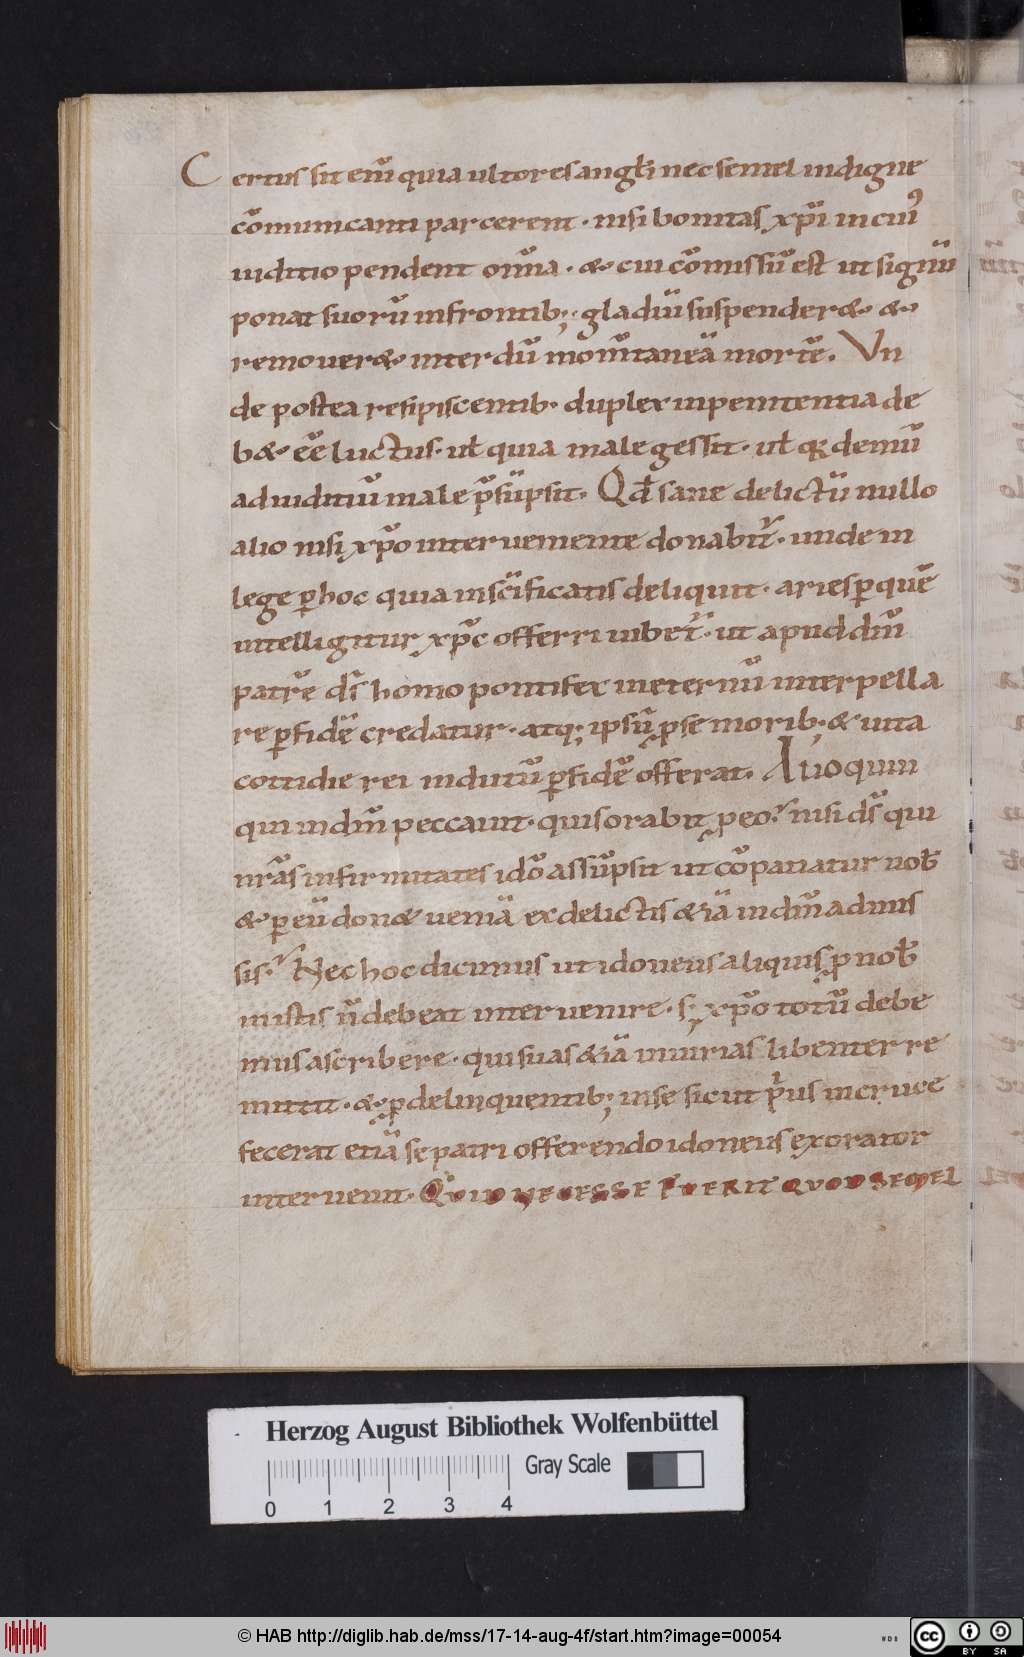 Certus sit enī quia ultores angłi nec semel indigne
cōmunicanti parcerent · nisi bonitas xp̄i in cui᾽
iuditio pendent om̄ia · & cui cōmissū est ut signū
ponat suorū in frontib; · gladiū suspender& · &
remouer& interdū mom̄taneā mortē. Vn
de postea resipiscentib· duplex in penitentia de
b& eē luctus · uł quia male gessit · uł qꝛ demū
ad iuditiū male p̄sūpsit. Qđ sane delictū nullo
alio nisi xp̄o interueniente donabit̃ · unde in
lege ꝑ hoc quia in sc̄ificatis deliquit · aries ꝑ quē
intelligitur xp̄c offerri iubet̃ · ut apud dm̄
patrē ds̄ homo pontifex in eternū interpella
re ꝑ fidē credatur · atq; ipsū ꝓ se morib; & uita
cottidie rei indutū ꝑ fidē offerat. Alioquin
qui in dm̄ peccauit · quis orabit ꝓ eo? nisi ds̄ qui
nr̄as infirmitates idō assūpsit ut cōpatiatur nob̄
& ꝑ eū don& ueniā ex delictis &iā in dm̄ admis
sis? Nec hoc dicimus ut idoneus aliquis ꝓ nob̄
iustis n̄ debeat interuenire · s; xp̄o totū debe
mus ascribere · qui suas &iā iniurias libenter re
mittit · & ꝓ delinquentib; in se sicut p̄us in cruce
fecerat etiā se patri offerendo idoneus exorator
interuenit. QVID NECESSE FVERIT QVOD SEMEL
Herzog August Bibliothek Wolfenbüttel
Gray Scale
0 1 2 3 4
© HAB http://diglib.hab.de/mss/17-14-aug-4f/start.htm?image=00054
WDB
cc BY SA